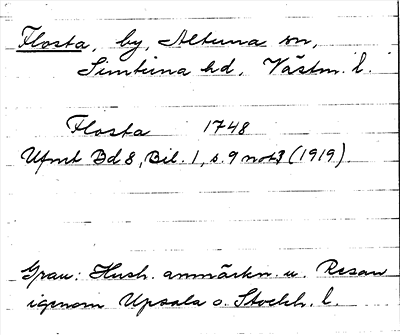 Flosta, by, Altuna sn,
Simtuna hd, Västm. l.
Flosta 1748
Ufmt Bd 8, Bil. 1, s. 9 not 3 (1919).
Grau: Hush. anmärkn. u. Resan
igenom Upsala o. Stockh. l.